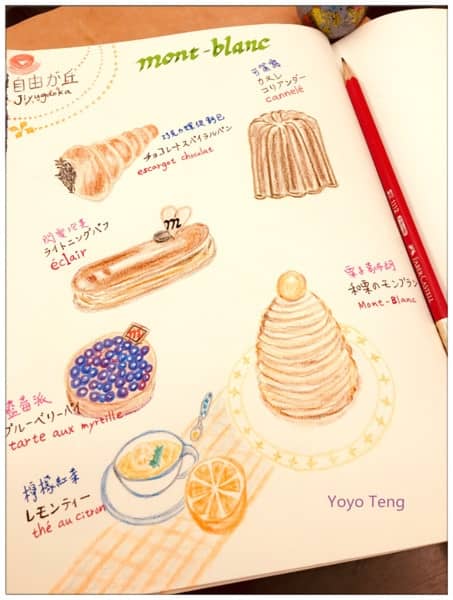 mont-blanc
自由が丘
Jiyugaoka
可露麗
カヌレ
コリアンダー
cannelé
巧克力螺旋麵包
チョコレートスパイラルパン
escargot chocolat
閃電泡芙
ライトニングパフ
éclair
m
栗子蒙布朗
和栗のモンブラン
Mont-Blanc
藍莓派
ブルーベリーパイ
tarte aux myrtille
檸檬紅茶
レモンティー
thé au citron
FABER-CASTELL
Yoyo Teng